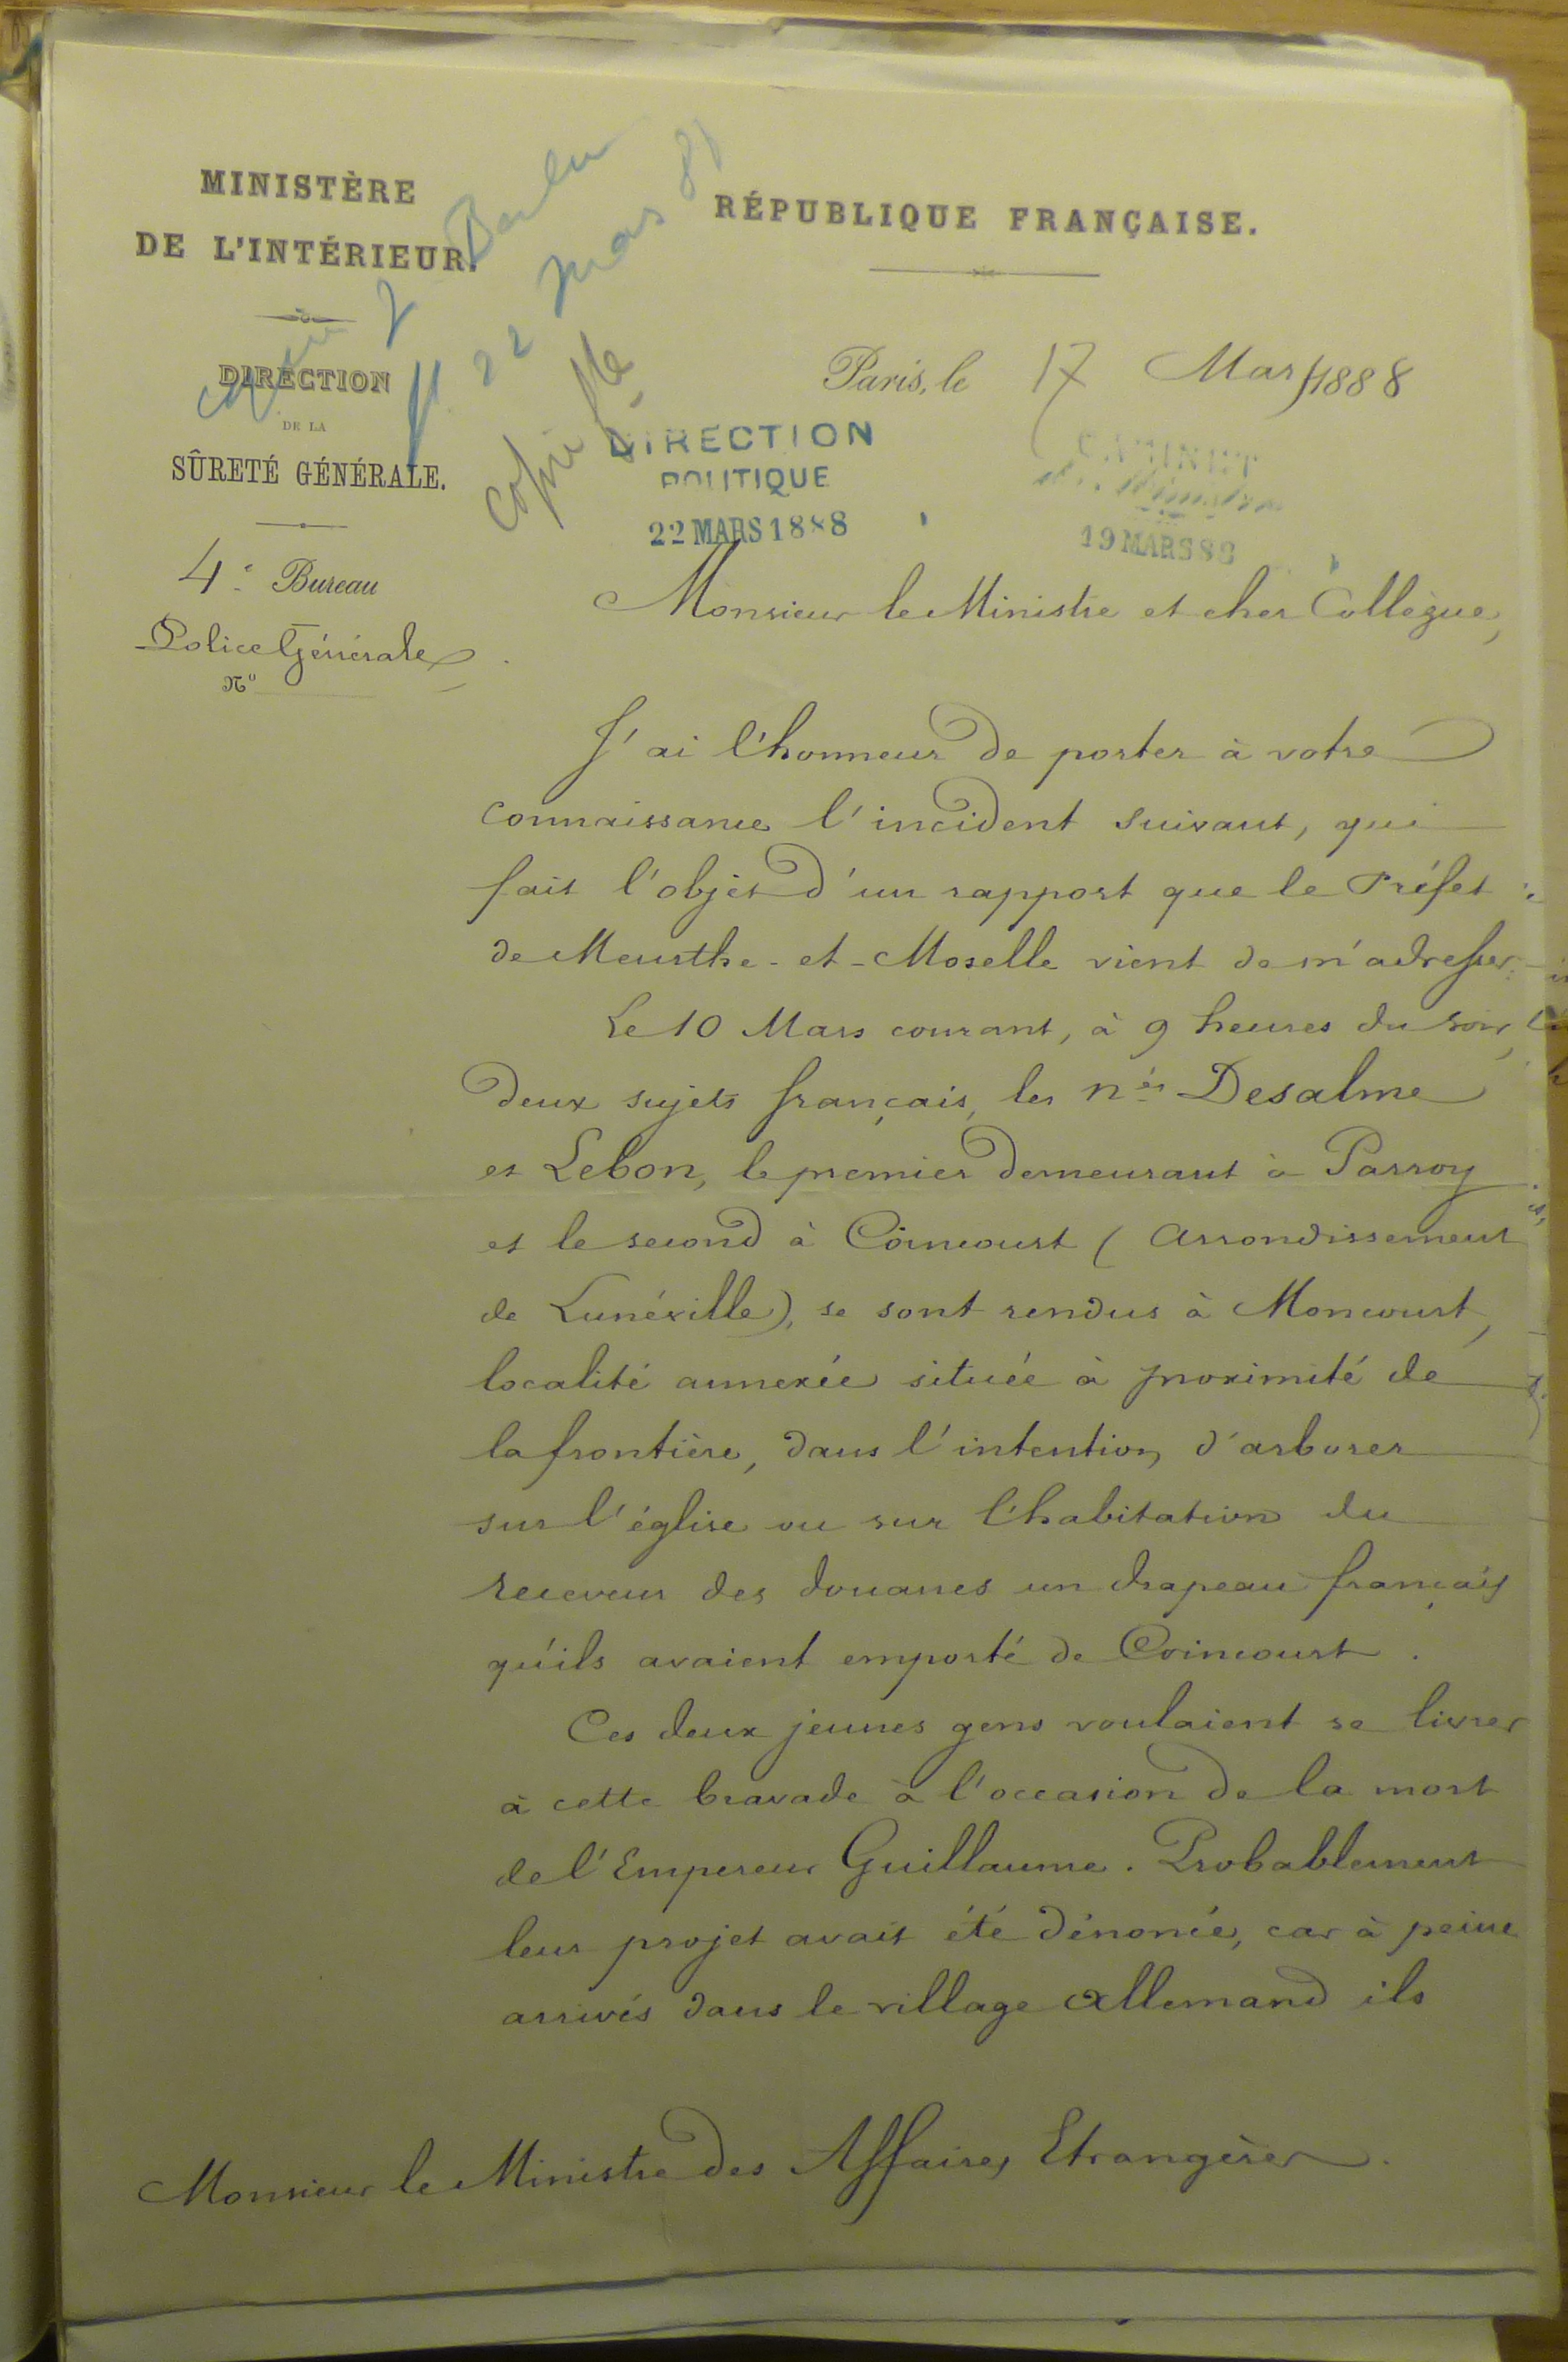 MINISTÈRE
DE L'INTÉRIEUR.
DIRECTION
DE LA
SÛRETÉ GÉNÉRALE.
4e Bureau
Police Générale
No
22 mars 88
Copie
RÉPUBLIQUE FRANÇAISE.
Paris, le 17 Mars 1888
DIRECTION
POLITIQUE
22 MARS 1888
CABINET
19 MARS 88
Monsieur le Ministre et cher Collègue,
J'ai l'honneur de porter à votre
connaissance l'incident suivant, qui
fait l'objet d'un rapport que le Préfet
de Meurthe-et-Moselle vient de m'adresser.
Le 10 Mars courant, à 9 heures du soir,
deux sujets français, les nés Desalme
et Lebon, le premier demeurant à Parroy
et le second à Coincourt (Arrondissement
de Lunéville), se sont rendus à Moncourt,
localité annexée située à proximité de
la frontière, dans l'intention d'arborer
sur l'église ou sur l'habitation du
receveur des douanes un drapeau français
qu'ils avaient emporté de Coincourt.
Ces deux jeunes gens voulaient se livrer
à cette bravade à l'occasion de la mort
de l'Empereur Guillaume. Probablement
leur projet avait été dénoncé, car à peine
arrivés dans le village allemand ils
Monsieur le Ministre des Affaires Etrangères.